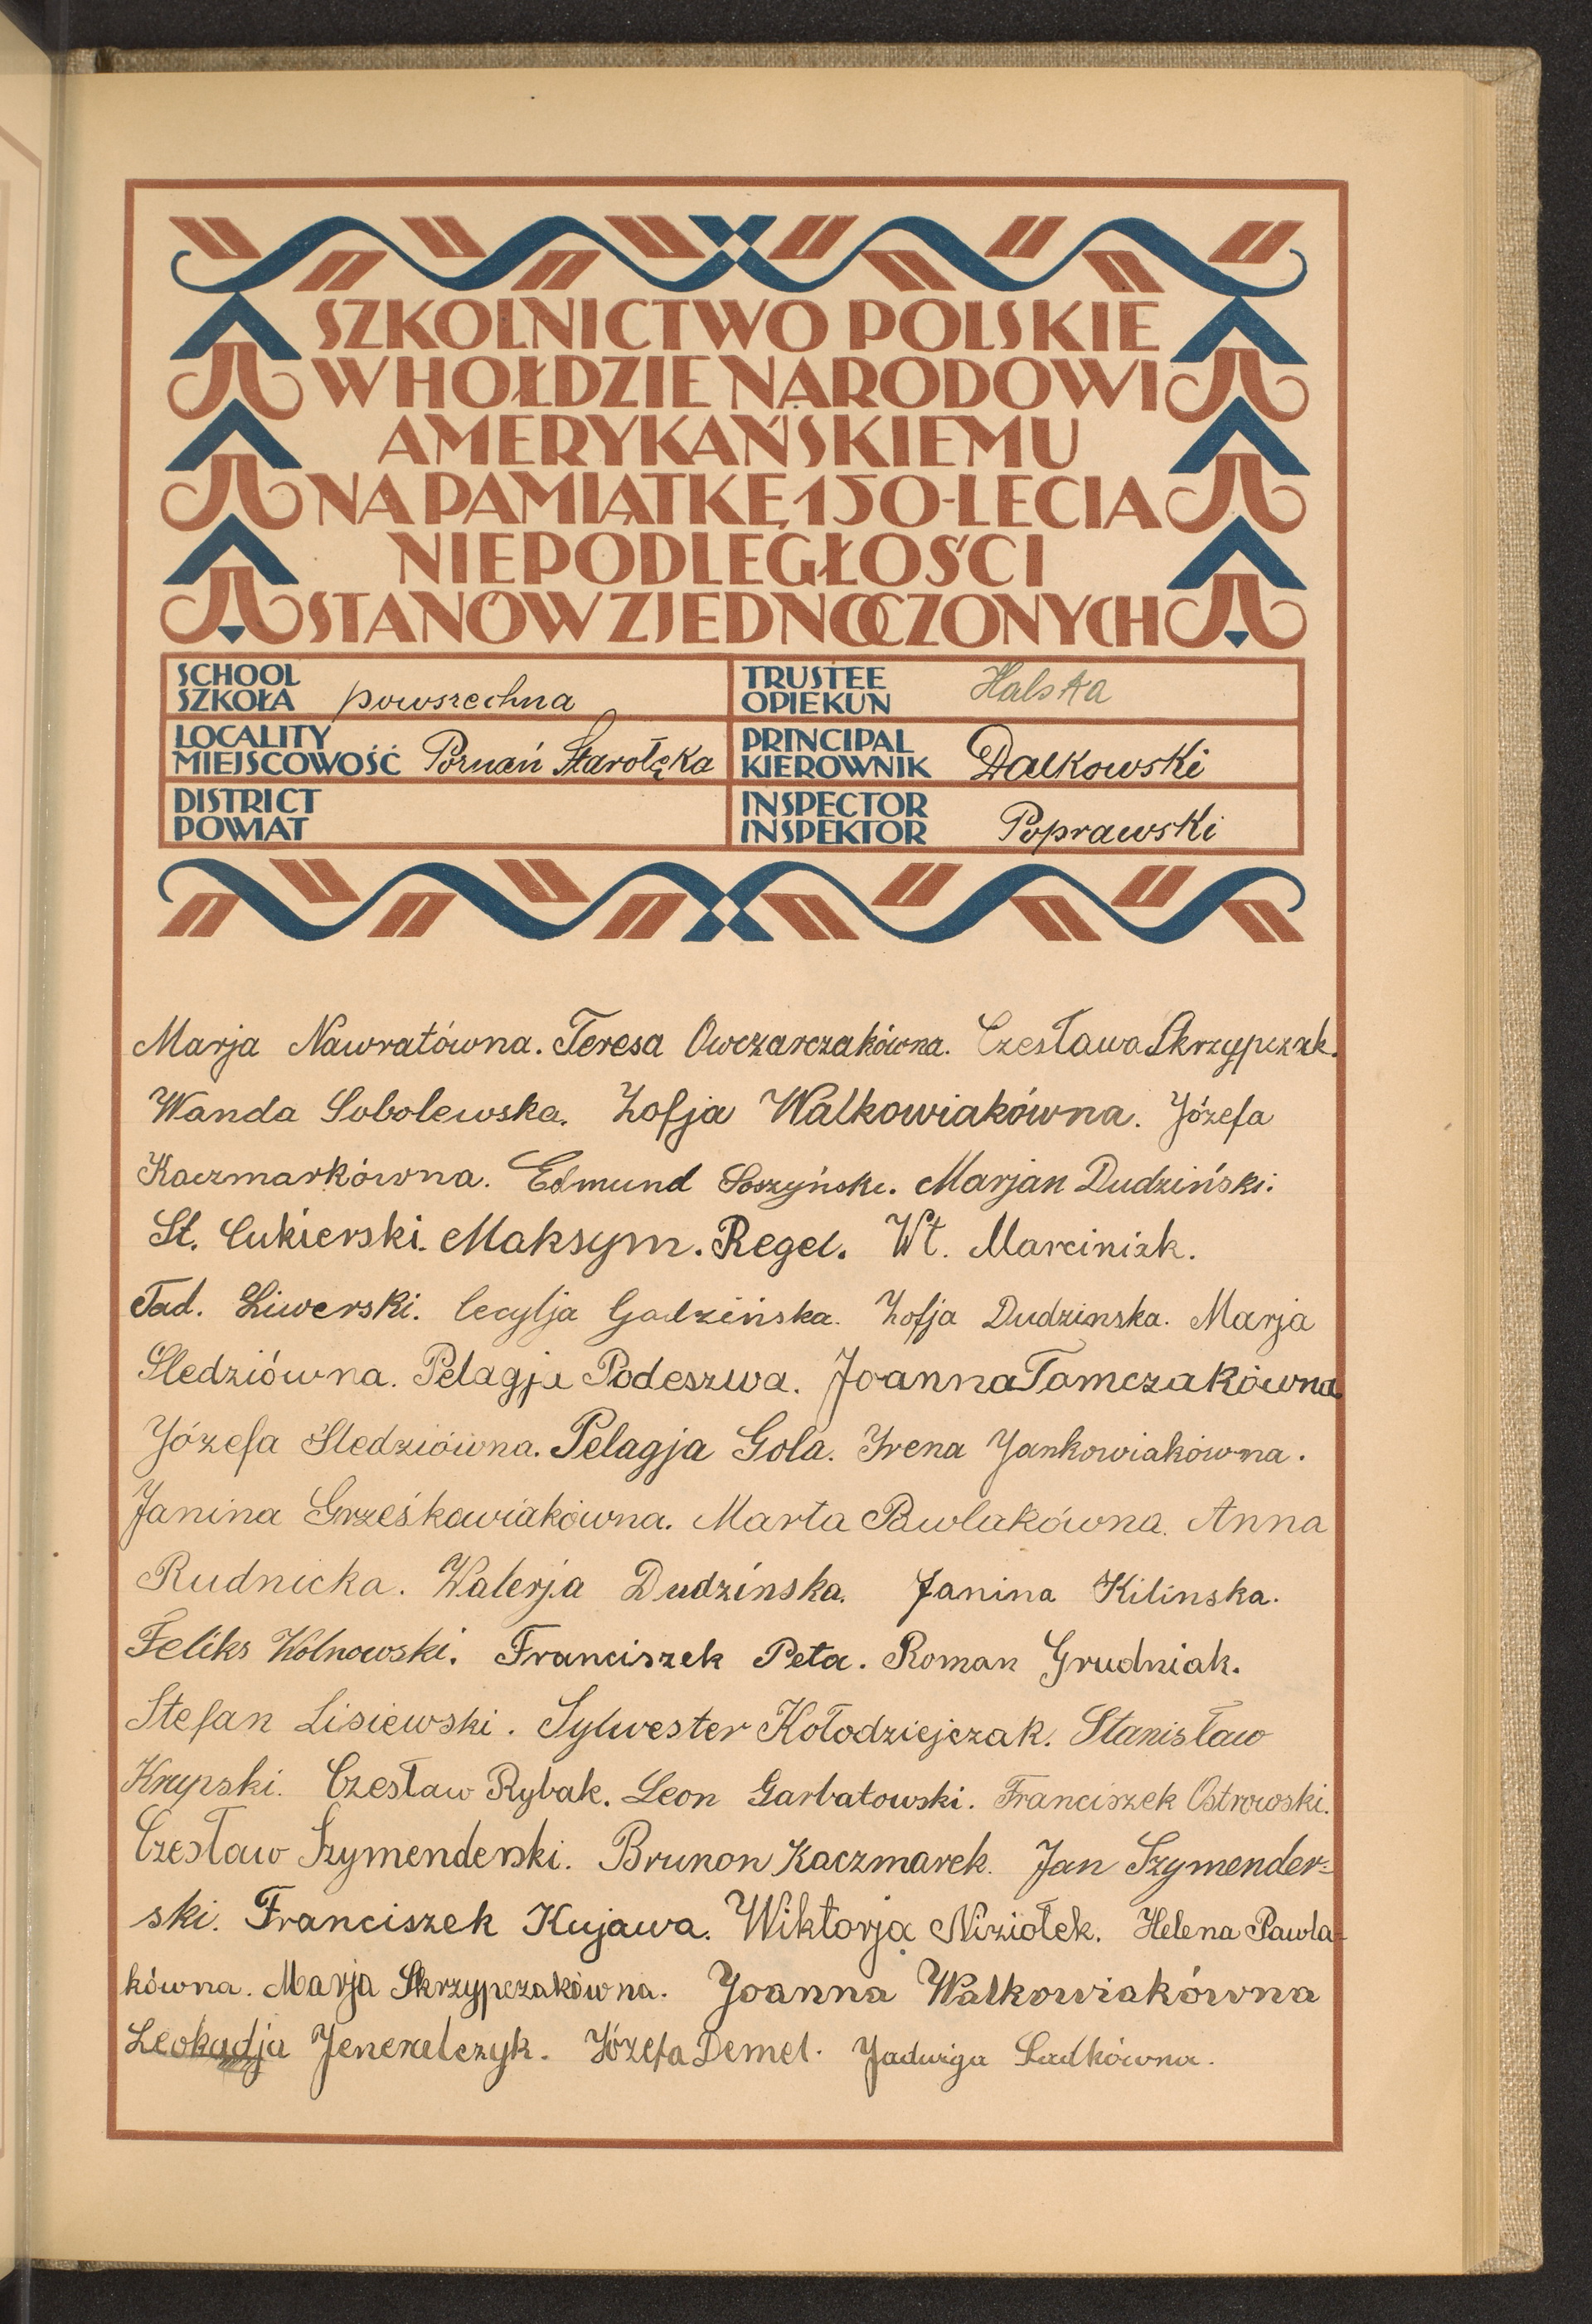 SZKOLNICTWO POLSKIE
W HOŁDZIE NARODOWI
AMERYKAŃSKIEMU
NA PAMIĄTKĘ 150-LECIA
NIEPODLEGŁOŚCI
STANÓW ZJEDNOCZONYCH
SCHOOL
SZKOŁA powszechna
TRUSTEE
OPIEKUN Halska
LOCALITY
MIEJSCOWOŚĆ Poznań Starołęka
PRINCIPAL
KIEROWNIK Dalkowski
DISTRICT
POWIAT
INSPECTOR
INSPEKTOR Poprawski
Marja Nawratówna. Teresa Owczarczakówna. Czesława Skrzypczak.
Wanda Sobolewska. Zofja Walkowiakówna. Józefa
Kaczmarkówna. Edmund Soszyński. Marjan Dudziński.
St. Cukierski. Maksym. Regel. Wł. Marciniak.
Tad. Liwerski. Cecylja Gadzińska. Zofja Dudzinska. Marja
Sledziówna. Pelagja Podeszwa. Joanna Tomczakówna.
Józefa Sledziówna. Pelagja Gola. Irena Jankowiakówna.
Janina Grześkowiakówna. Marta Pawlakówna. Anna
Rudnicka. Walerja Dudzińska. Janina Kilinska.
Feliks Wolnowski. Franciszek Peta. Roman Grudniak.
Stefan Lisiewski. Sylwester Kołodziejczak. Stanisław
Krupski. Czesław Rybak. Leon Garbatowski. Franciszek Ostrowski.
Czesław Szymenderski. Brunon Kaczmarek. Jan Szymender-
ski. Franciszek Kujawa. Wiktorja Niziołek. Helena Pawla-
kówna. Marja Skrzypczakówna. Joanna Walkowiakówna
Leokadja Jeneralczyk. Józefa Demel. Jadwiga Sadkówna.